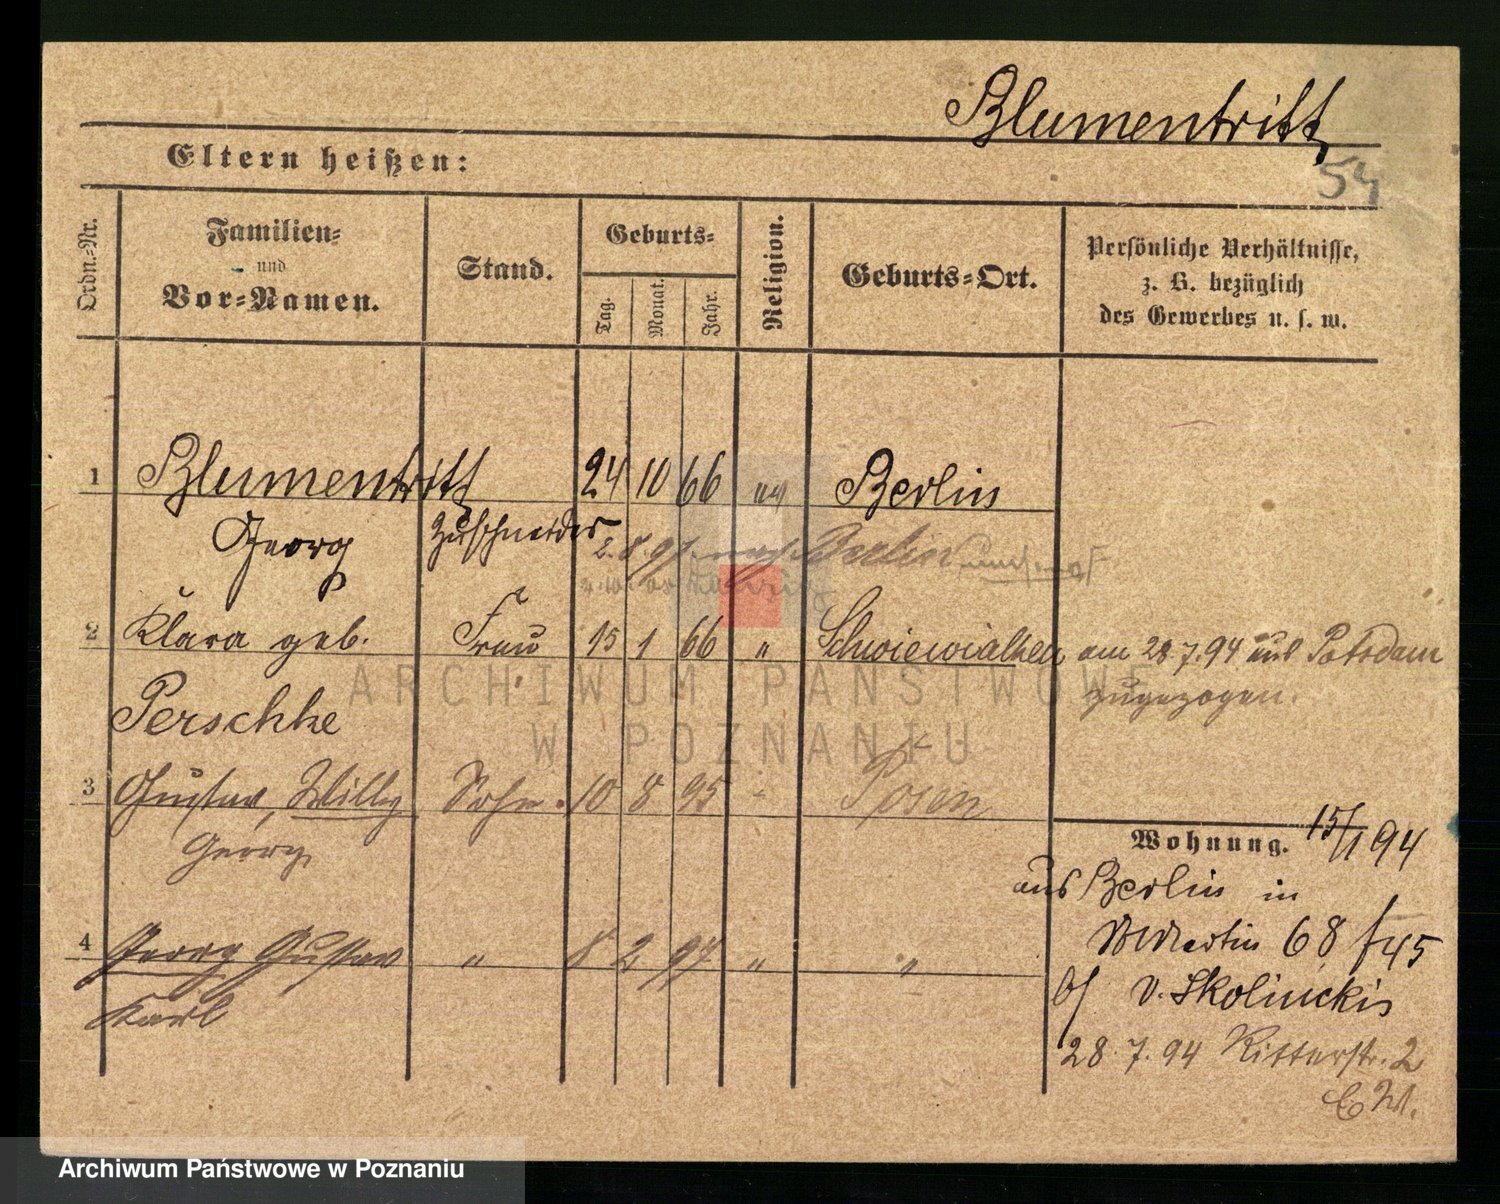 Blumentritt
Eltern heißen:
54
Ordn.-Nr.
Familien-
und
Vor-Namen.
Stand.
Geburts-
Tag.
Monat.
Jahr.
Religion.
Geburts-Ort.
Persönliche Verhältnisse,
z. B. bezüglich
des Gewerbes u. s. w.
1 Blumentritt 24 10 66 ev Berlin
Georg Zuschneider
2. 8. 97 nach Berlin
2 Klara geb. Frau 15 1 66 " am 28.7.94 aus Potsdam
Perschke zugezogen.
ARCHIWUM PAŃSTWOWE
W POZNANIU
3 Gustav, Willy Sohn 10 8 95 " Posen
Georg
Wohnung. 15/1 94
aus Berlin in
St Martin 68 f 45
b/ v. Skolinckis
4 Georg Gustav " 8 2 97 " "
Karl
28.7.94 Ritterstr. 2
Archiwum Państwowe w Poznaniu